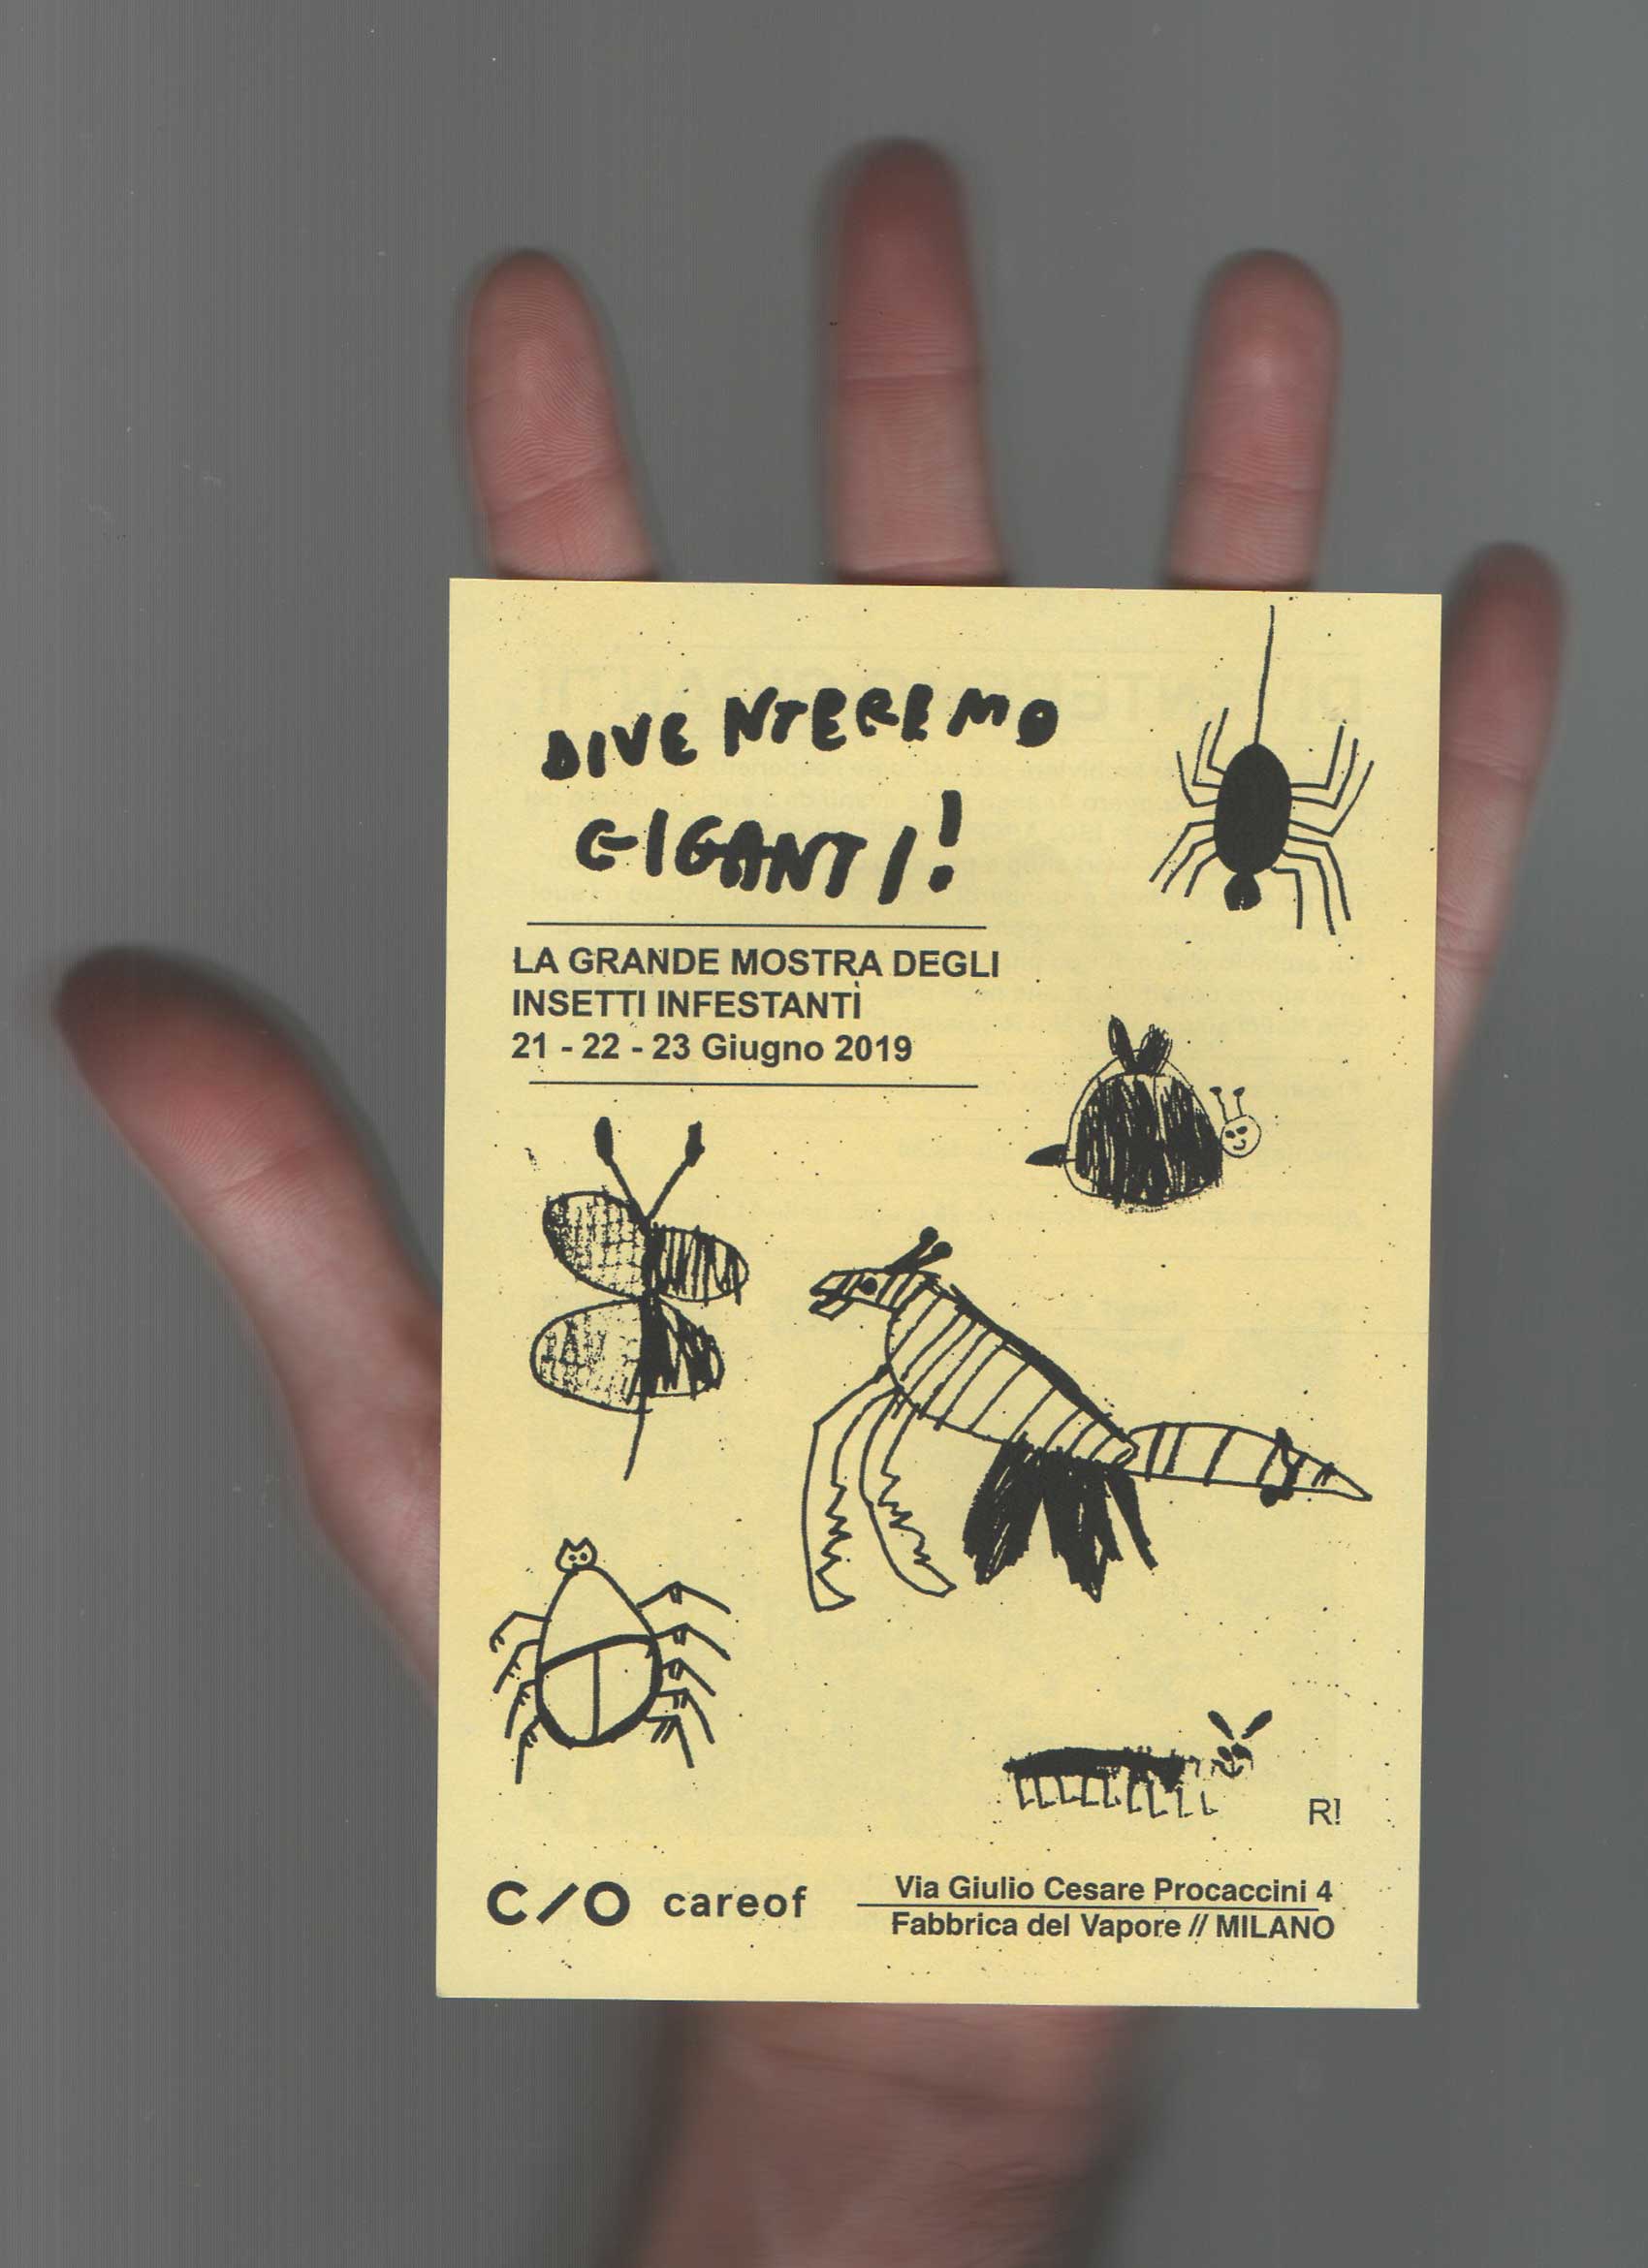 DIVENTEREMO
GIGANTI!
LA GRANDE MOSTRA DEGLI
INSETTI INFESTANTI
21 - 22 - 23 Giugno 2019
R!
C/O careof
Via Giulio Cesare Procaccini 4
Fabbrica del Vapore // MILANO